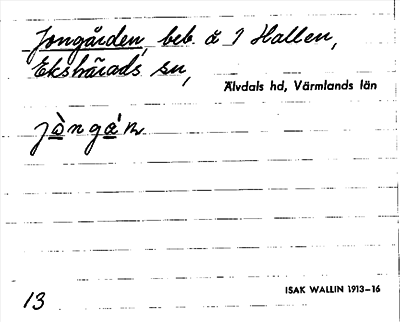 Jongården, beb å 1 Hallen,
Ekshärads sn,
Älvdals hd, Värmlands län
jòngá'ɳ
ISAK WALLIN 1913–16
13